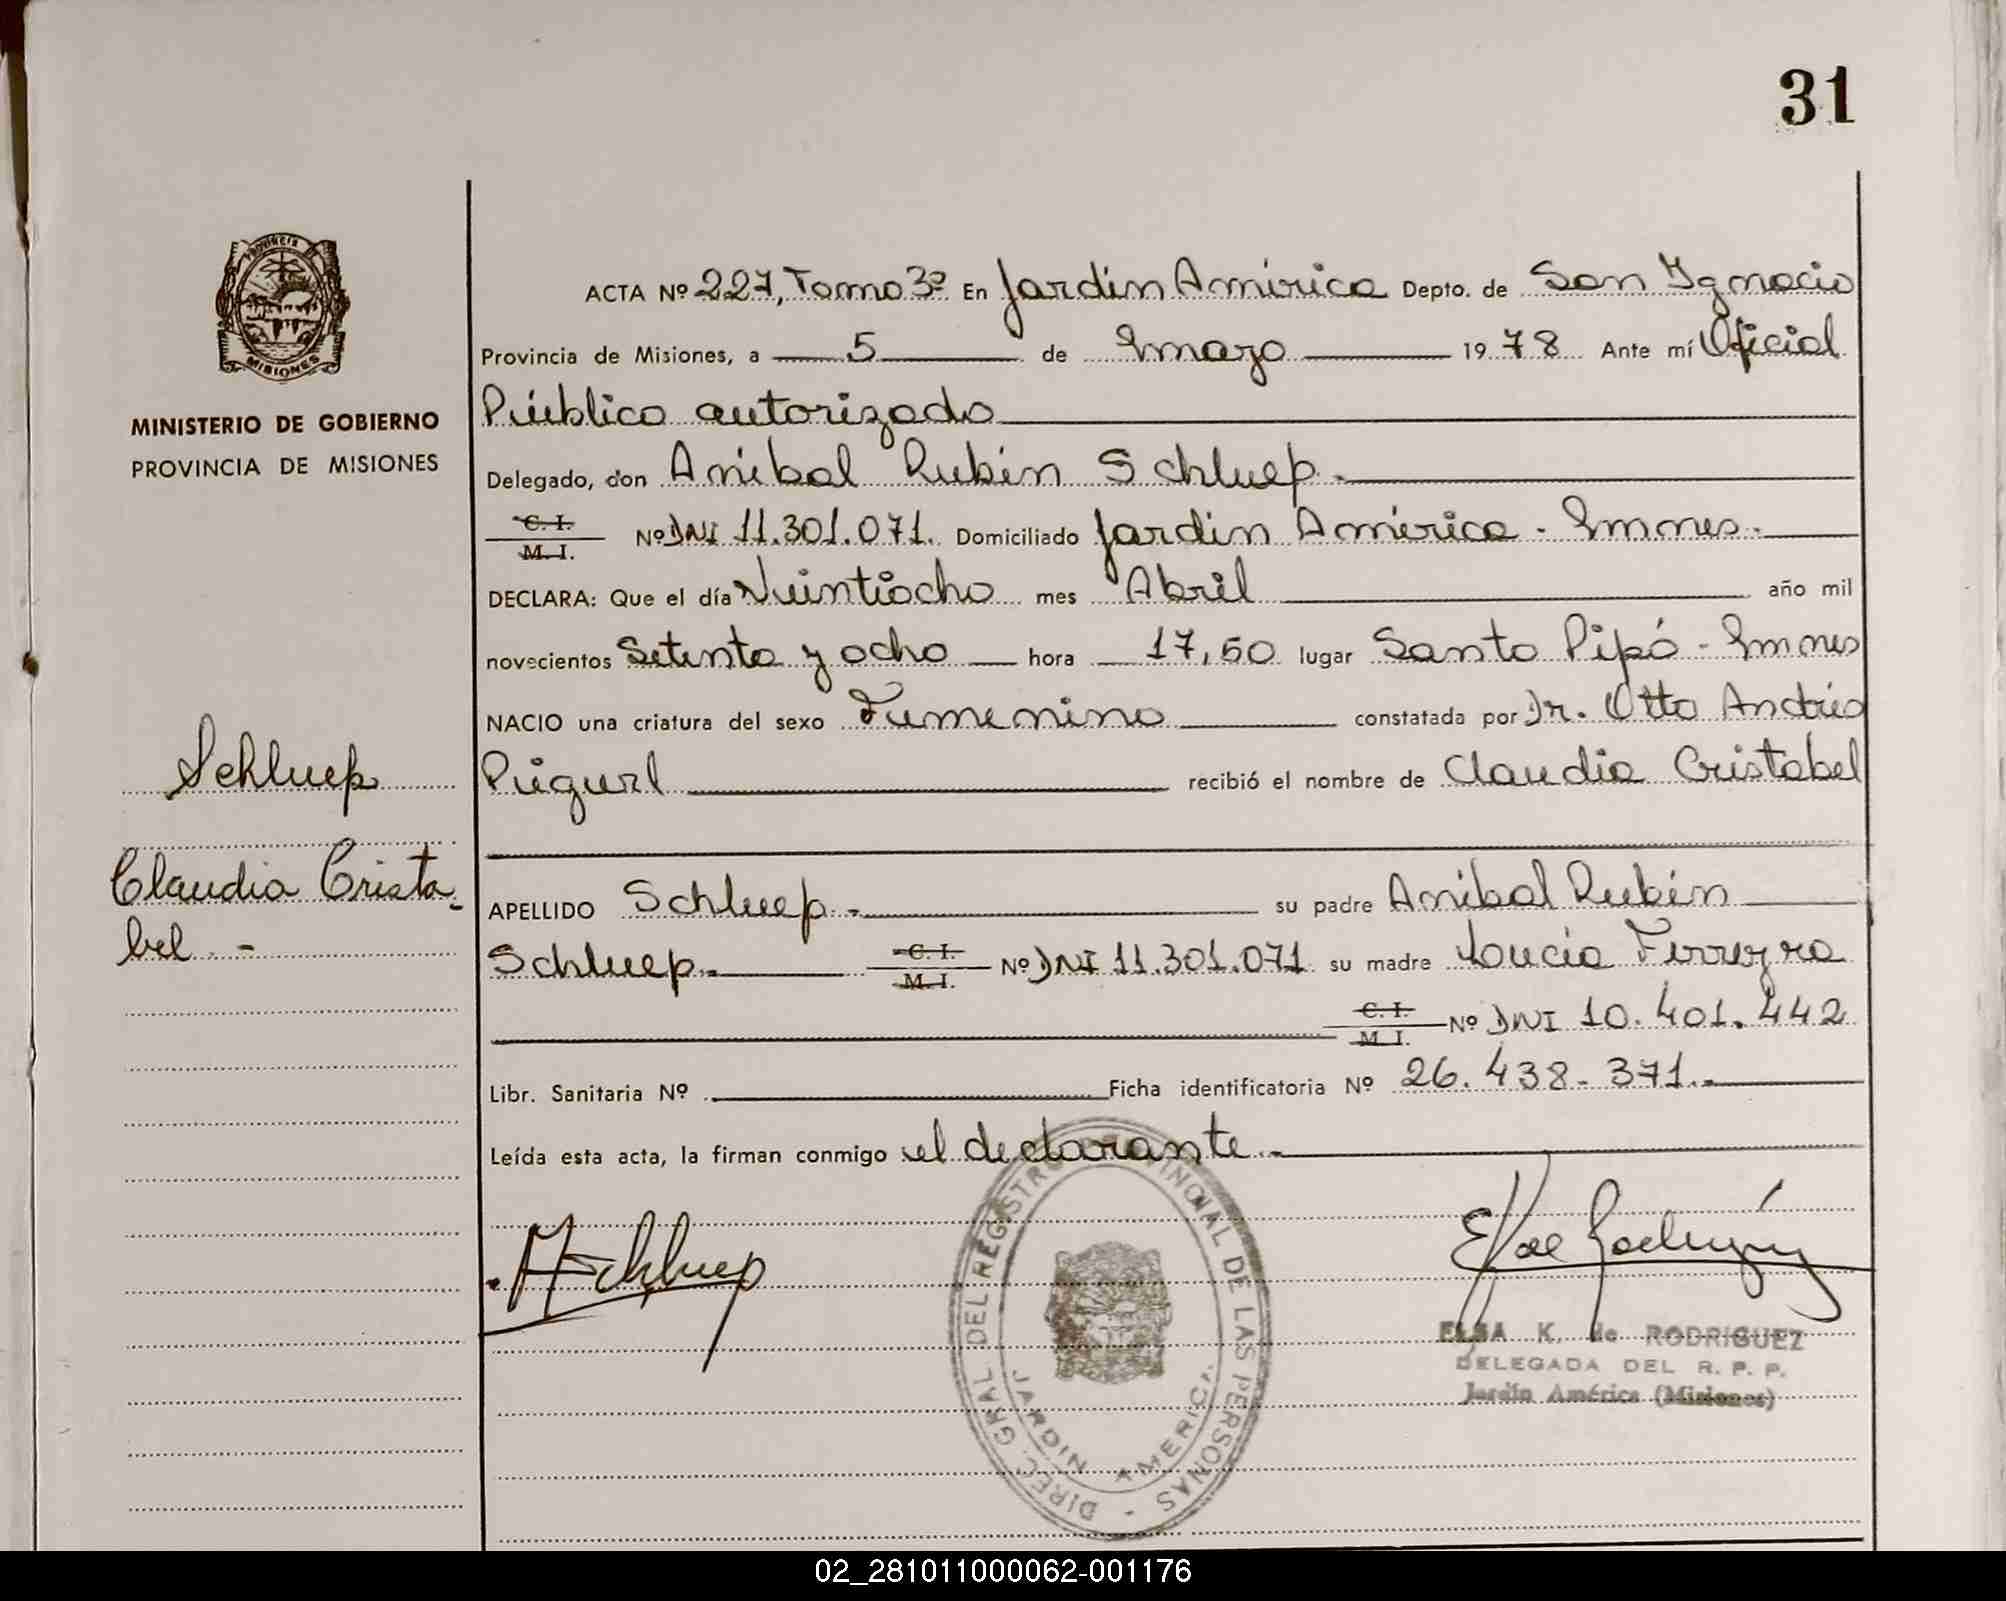 31
PROVINCIA DE
MISIONES
MINISTERIO DE GOBIERNO
PROVINCIA DE MISIONES
Schluep
Claudia Crista-
bel.-
ACTA Nº 227, Tomo 3º En Jardín América Depto. de San Ignacio
Provincia de Misiones, a 5 de mayo 19 78 Ante mí Oficial
Público autorizado
Delegado, don Aníbal Rubén Schluep.-
C. I. / M. I. Nº DNI 11.301.071. Domiciliado Jardín América - Mnes.-
DECLARA: Que el día Veintiocho mes Abril año mil
novecientos Setenta y ocho hora 17,50 lugar Santo Pipó - Mnes
NACIO una criatura del sexo Femenino constatada por Dr. Otto Andrés
recibió el nombre de Claudia Cristabel
APELLIDO Schluep.- su padre Aníbal Rubén
Schluep.- C. I. / M. I. Nº DNI 11.301.071 su madre Lucía Ferreyra
C. I. / M. I. Nº DNI 10.401.442
Libr. Sanitaria Nº Ficha identificatoria Nº 26.438.371.-
Leída esta acta, la firman conmigo el declarante.-
ASchluep
DIREC. GRAL. DEL REGISTRO PROVINCIAL DE LAS PERSONAS -
JARDIN AMERICA
ELSA K. de RODRIGUEZ
DELEGADA DEL R. P. P.
Jardín América (Misiones)
02_281011000062-001176